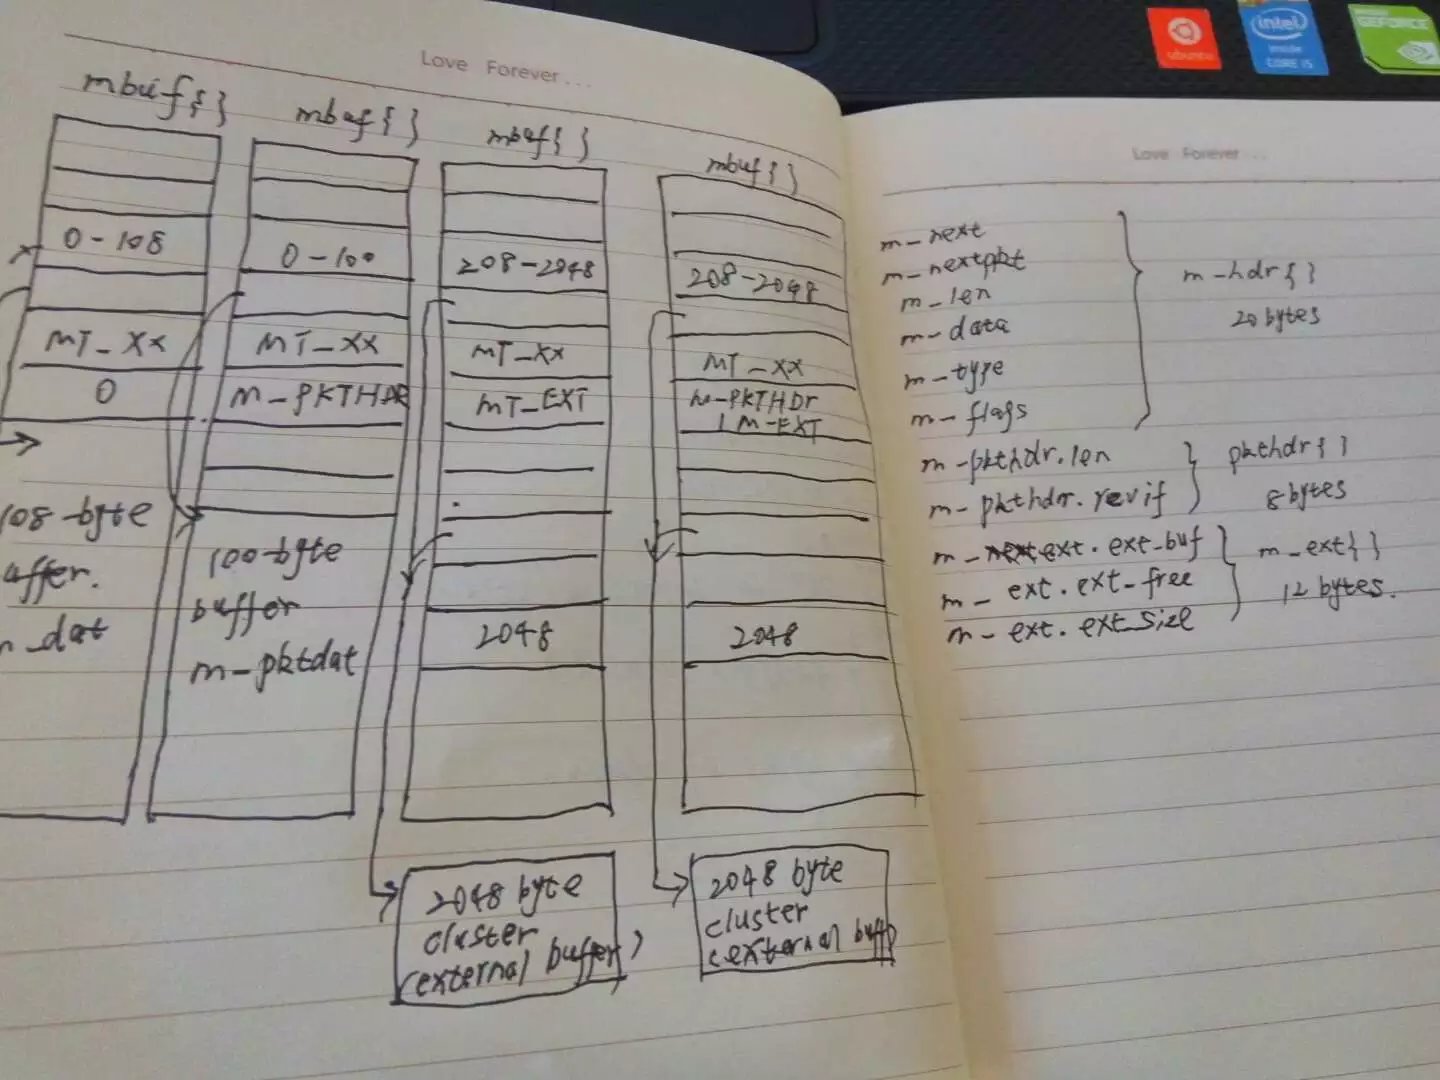 Love Forever...
mbuf{}
0-108
MT_XX
0
108-byte
m_dat
mbuf{}
0-100
MT_XX
M_PKTHDR
100-byte
buffer
m_pktdat
mbuf{}
208-2048
MT_XX
MT_EXT
2048
2048 byte
cluster
(external buffer)
mbuf{}
208-2048
MT_XX
M-PKTHDr
| M-EXT
2048
2048 byte
cluster
(external buff
Love Forever...
m_next
m_nextpkt
m_len
m_data
m_type
m_flags
m_hdr{}
20 bytes
m_pkthdr.len
m_pkthdr.revif
pkthdr{}
8 bytes
m_ext.ext_buf
m_ext.ext_free
m_ext.ext_size
m_ext{}
12 bytes.
ubuntu
intel
inside
CORE i5
GEFORCE